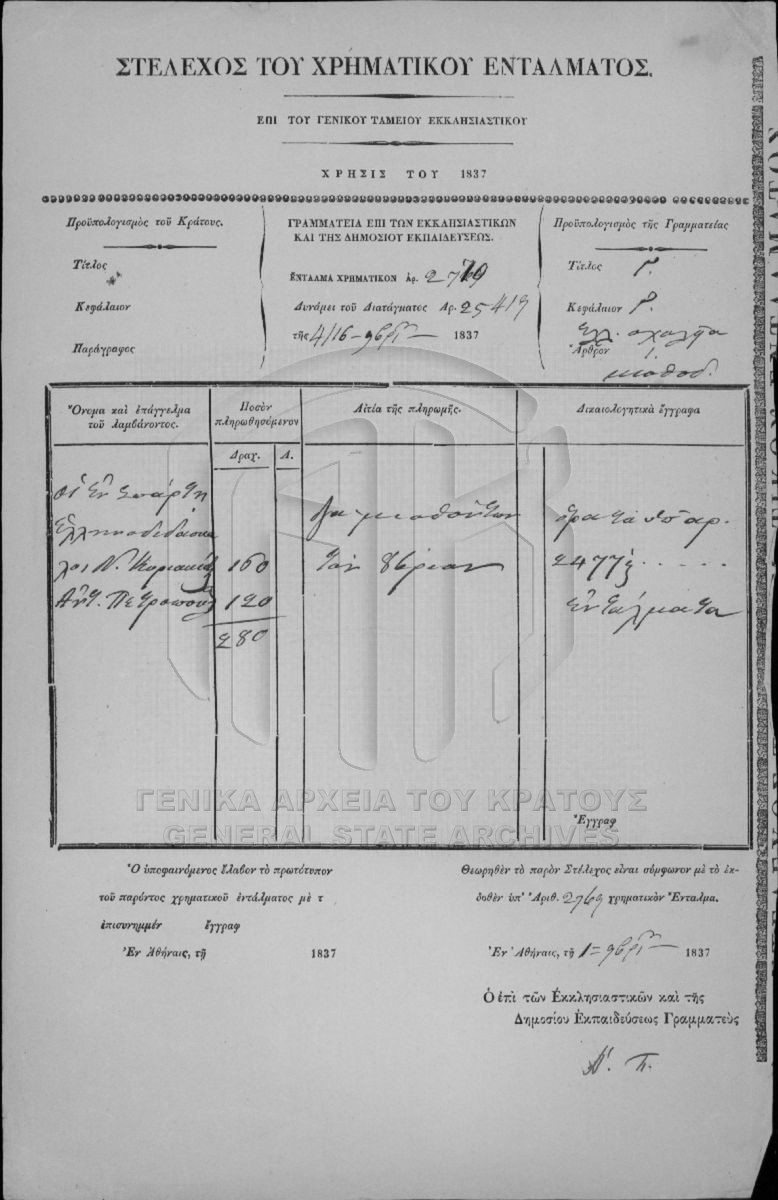 ΣΤΕΛΕΧΟΣ ΤΟΥ ΧΡΗΜΑΤΙΚΟΥ ΕΝΤΑΛΜΑΤΟΣ.
ΕΠΙ ΤΟΥ ΓΕΝΙΚΟΥ ΤΑΜΕΙΟΥ ΕΚΚΛΗΣΙΑΣΤΙΚΟΥ
ΧΡΗΣΙΣ ΤΟΥ 1837
Προϋπολογισμὸς τοῦ Κράτους.
Τίτλος
Κεφάλαιον
Παράγραφος
ΓΡΑΜΜΑΤΕΙΑ ΕΠΙ ΤΩΝ ΕΚΚΛΗΣΙΑΣΤΙΚΩΝ
ΚΑΙ ΤΗΣ ΔΗΜΟΣΙΟΥ ΕΚΠΑΙΔΕΥΣΕΩΣ.
ΕΝΤΑΛΜΑ ΧΡΗΜΑΤΙΚΟΝ Ἀρ.
Δυνάμει τοῦ Διατάγματος Ἀρ. 25419
τῆς 4/16 1837
Προϋπολογισμὸς τῆς Γραμματείας
Τίτλος
Κεφάλαιον
Ἄρθρον
Ὄνομα καὶ ἐπάγγελμα
τοῦ λαμβάνοντος.
Ποσὸν
πληρωθησόμενον
Δραχ. Λ.
Αἰτία τῆς πληρωμῆς.
Δικαιολογητικὰ ἔγγραφα
οἱ ἐν Σπάρτῃ
Ἑλληνοδιδάσκα
λοι Ν. 160
Ἀντ. Πετροπουλ 120
280
τὸν
ὅρα τὰ ὑπ' ἀρ.
2477
ἐντάλματα
Ἔγγραφ
ΓΕΝΙΚΑ ΑΡΧΕΙΑ ΤΟΥ ΚΡΑΤΟΥΣ
GENERAL STATE ARCHIVES
Ὁ ὑποφαινόμενος ἔλαβον τὸ πρωτότυπον
τοῦ παρόντος χρηματικοῦ ἐντάλματος μὲ τ
ἐπισυνημμέν ἔγγραφ
Ἐν Ἀθήναις, τῇ 1837
Θεωρηθὲν τὸ παρὸν Στέλεχος εἶναι σύμφωνον μὲ τὸ ἐκ-
δοθὲν ὑπ' Ἀριθ. 2769 χρηματικὸν Ἔνταλμα.
Ἐν Ἀθήναις, τῇ 1837
Ὁ ἐπὶ τῶν Ἐκκλησιαστικῶν καὶ τῆς
Δημοσίου Ἐκπαιδεύσεως Γραμματεὺς